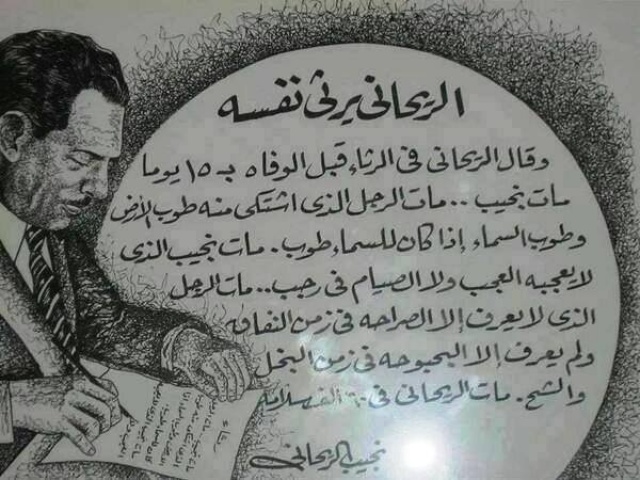 الريحانى يرثى نفسه
وقال الريحانى فى الرثاء قبل الوفاه بـ ١٥ يوما
مات نجيب .. مات الرجل الذى اشتكى منه طوب الأرض
وطوب السماء إذا كان للسماء طوب . مات نجيب الذى
لايعجبه العجب ولا الصيام فى رجب .. مات الرجل
الذى لايعرف إلا الصراحه فى زمن النفاق
ولم يعرف إلا البحبوحه فى زمن البخل
والشح . مات الريحانى فى ٦٠ ألف سلامه
نجيب الريحانى
رثاء